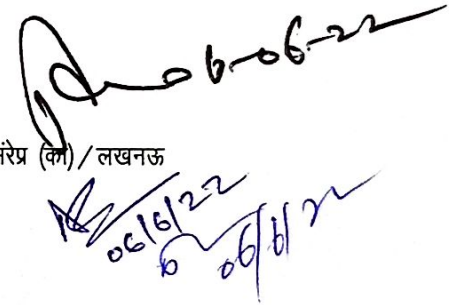 06-06-22
मंरेप्र (का) / लखनऊ
06/6/22
06/6/22